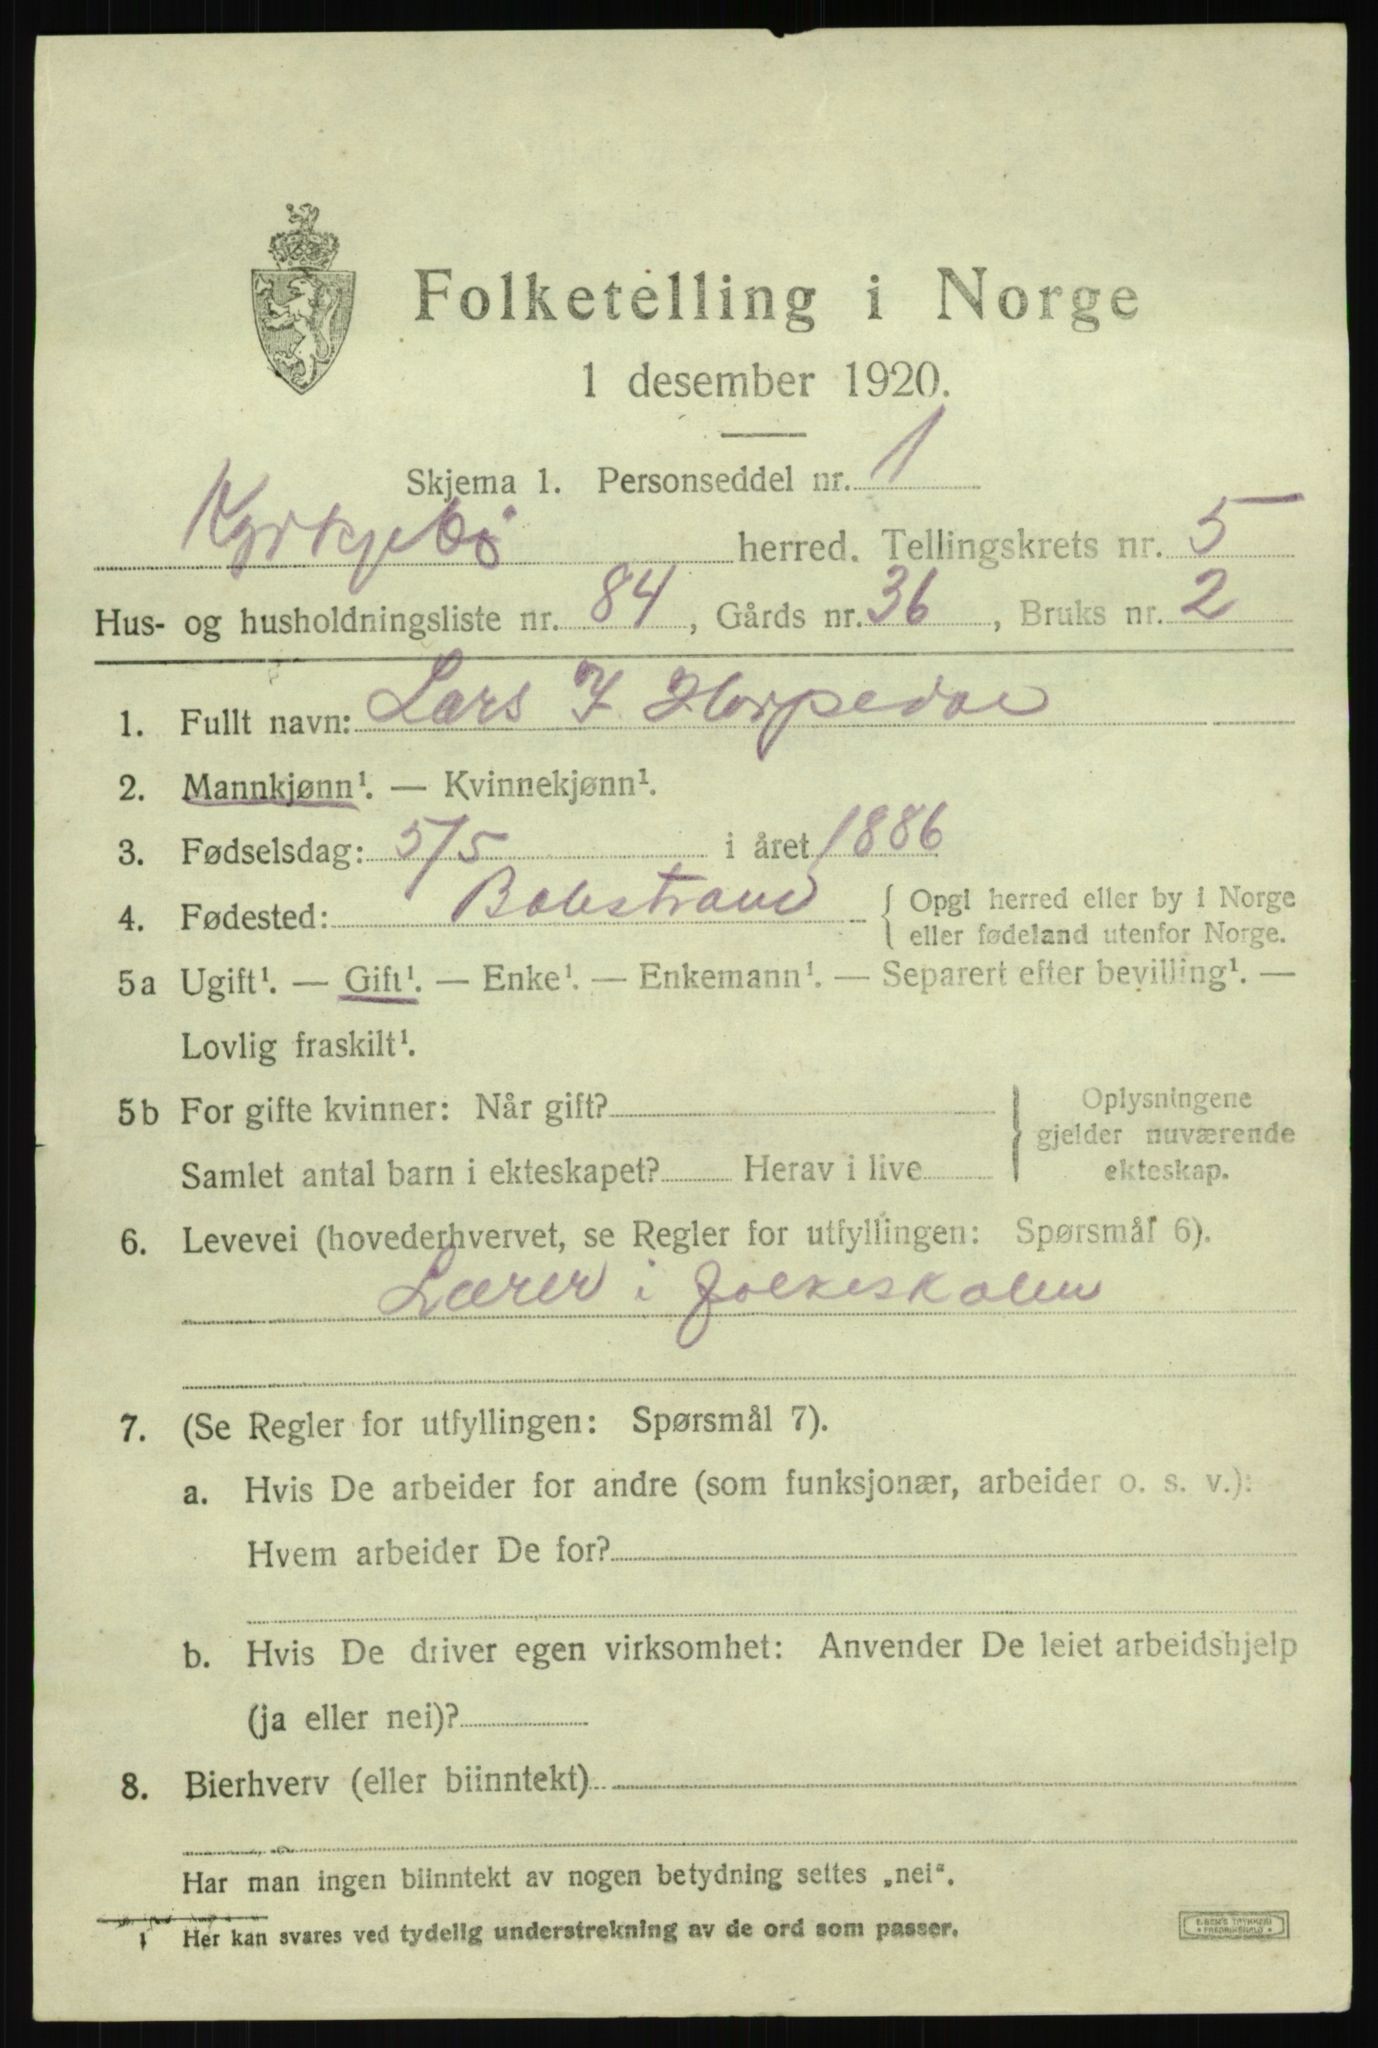 Folketelling i Norge
1 desember 1920.
Skjema 1. Personseddel nr. 1
Kyrkjebø herred. Tellingskrets nr. 5
Hus- og husholdningsliste nr. 84, Gårds nr. 36, Bruks nr. 2
1. Fullt navn: Lars I
2. Mannkjønn¹. — Kvinnekjønn¹.
3. Fødselsdag: 5/5 i året 1886
4. Fødested: Balestrand { Opgi herred eller by i Norge
eller fødeland utenfor Norge.
5a Ugift¹. — Gift¹. — Enke¹. — Enkemann¹. — Separert efter bevilling¹. —
Lovlig fraskilt¹.
5b For gifte kvinner: Når gift? } Oplysningene
gjelder nuværende
Samlet antal barn i ekteskapet? Herav i live ekteskap.
6. Levevei (hovederhvervet, se Regler for utfyllingen: Spørsmål 6).
Lærer i folkeskolen
7. (Se Regler for utfyllingen: Spørsmål 7).
a. Hvis De arbeider for andre (som funksjonær, arbeider o. s. v.):
Hvem arbeider De for?
b. Hvis De driver egen virksomhet: Anvender De leiet arbeidshjelp
(ja eller nei)?
8. Bierhverv (eller biinntekt)
Har man ingen biinntekt av nogen betydning settes „nei“.
1 Her kan svares ved tydelig understrekning av de ord som passer.